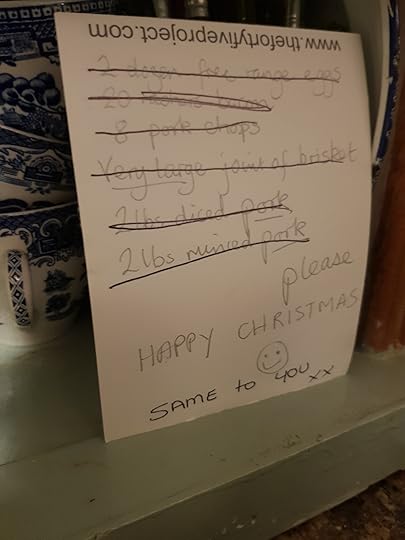 www.thefortyfiveproject.com
2 dozen free range eggs
20
8 pork chops
Very large joint of brisket
2lbs diced pork
2lbs minced pork
please
HAPPY CHRISTMAS
SAME to YOU xx